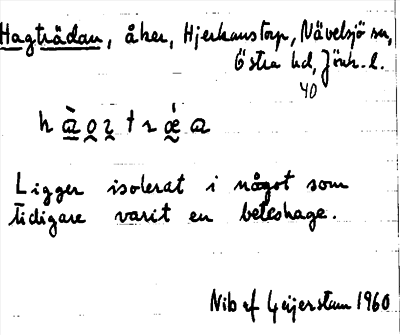 Hagträdan, åker, Hjerkanstorp, Nävelsjö sn,
Östra hd, Jönk. l.
40
Ligger isolerat i något som
tidigare varit en beteshage.
Nib ef Geijerstam 1960